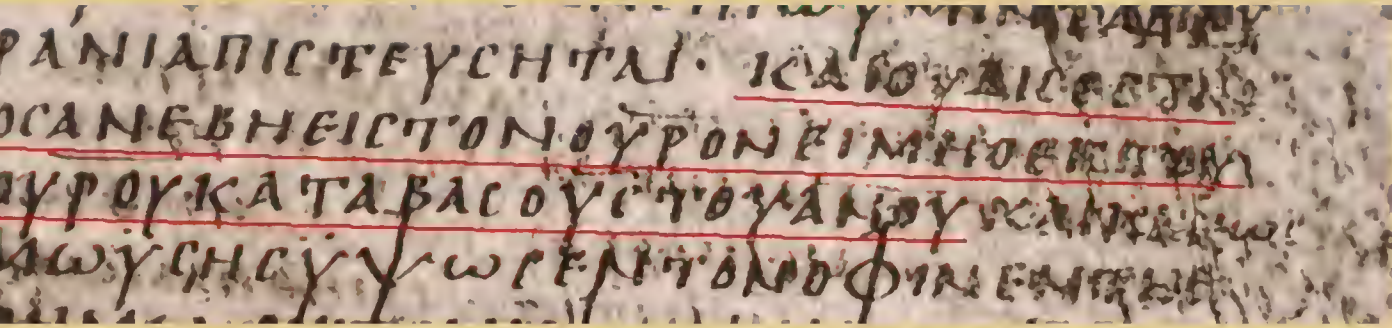 ΡΑΝΙΑΠΙCΤΕΥCΗΤΑΙ· ΚΑΙΟΥΔΙCΕCΤΙ
ΟCΑΝΕΒΗΕΙCΤΟΝΟΥΡΟΝΕΙΜΗΟΕΚΤΟΥ
ΟΥΡΟΥΚΑΤΑΒΑCΟΥCΤΟΥΑΝΟΥΚΑΙΚΑΘΩC
ΜΩΥCΗCΥΨΩCΕΝΤΟΝΟΦΙΝΕΝΤΗΕΡ